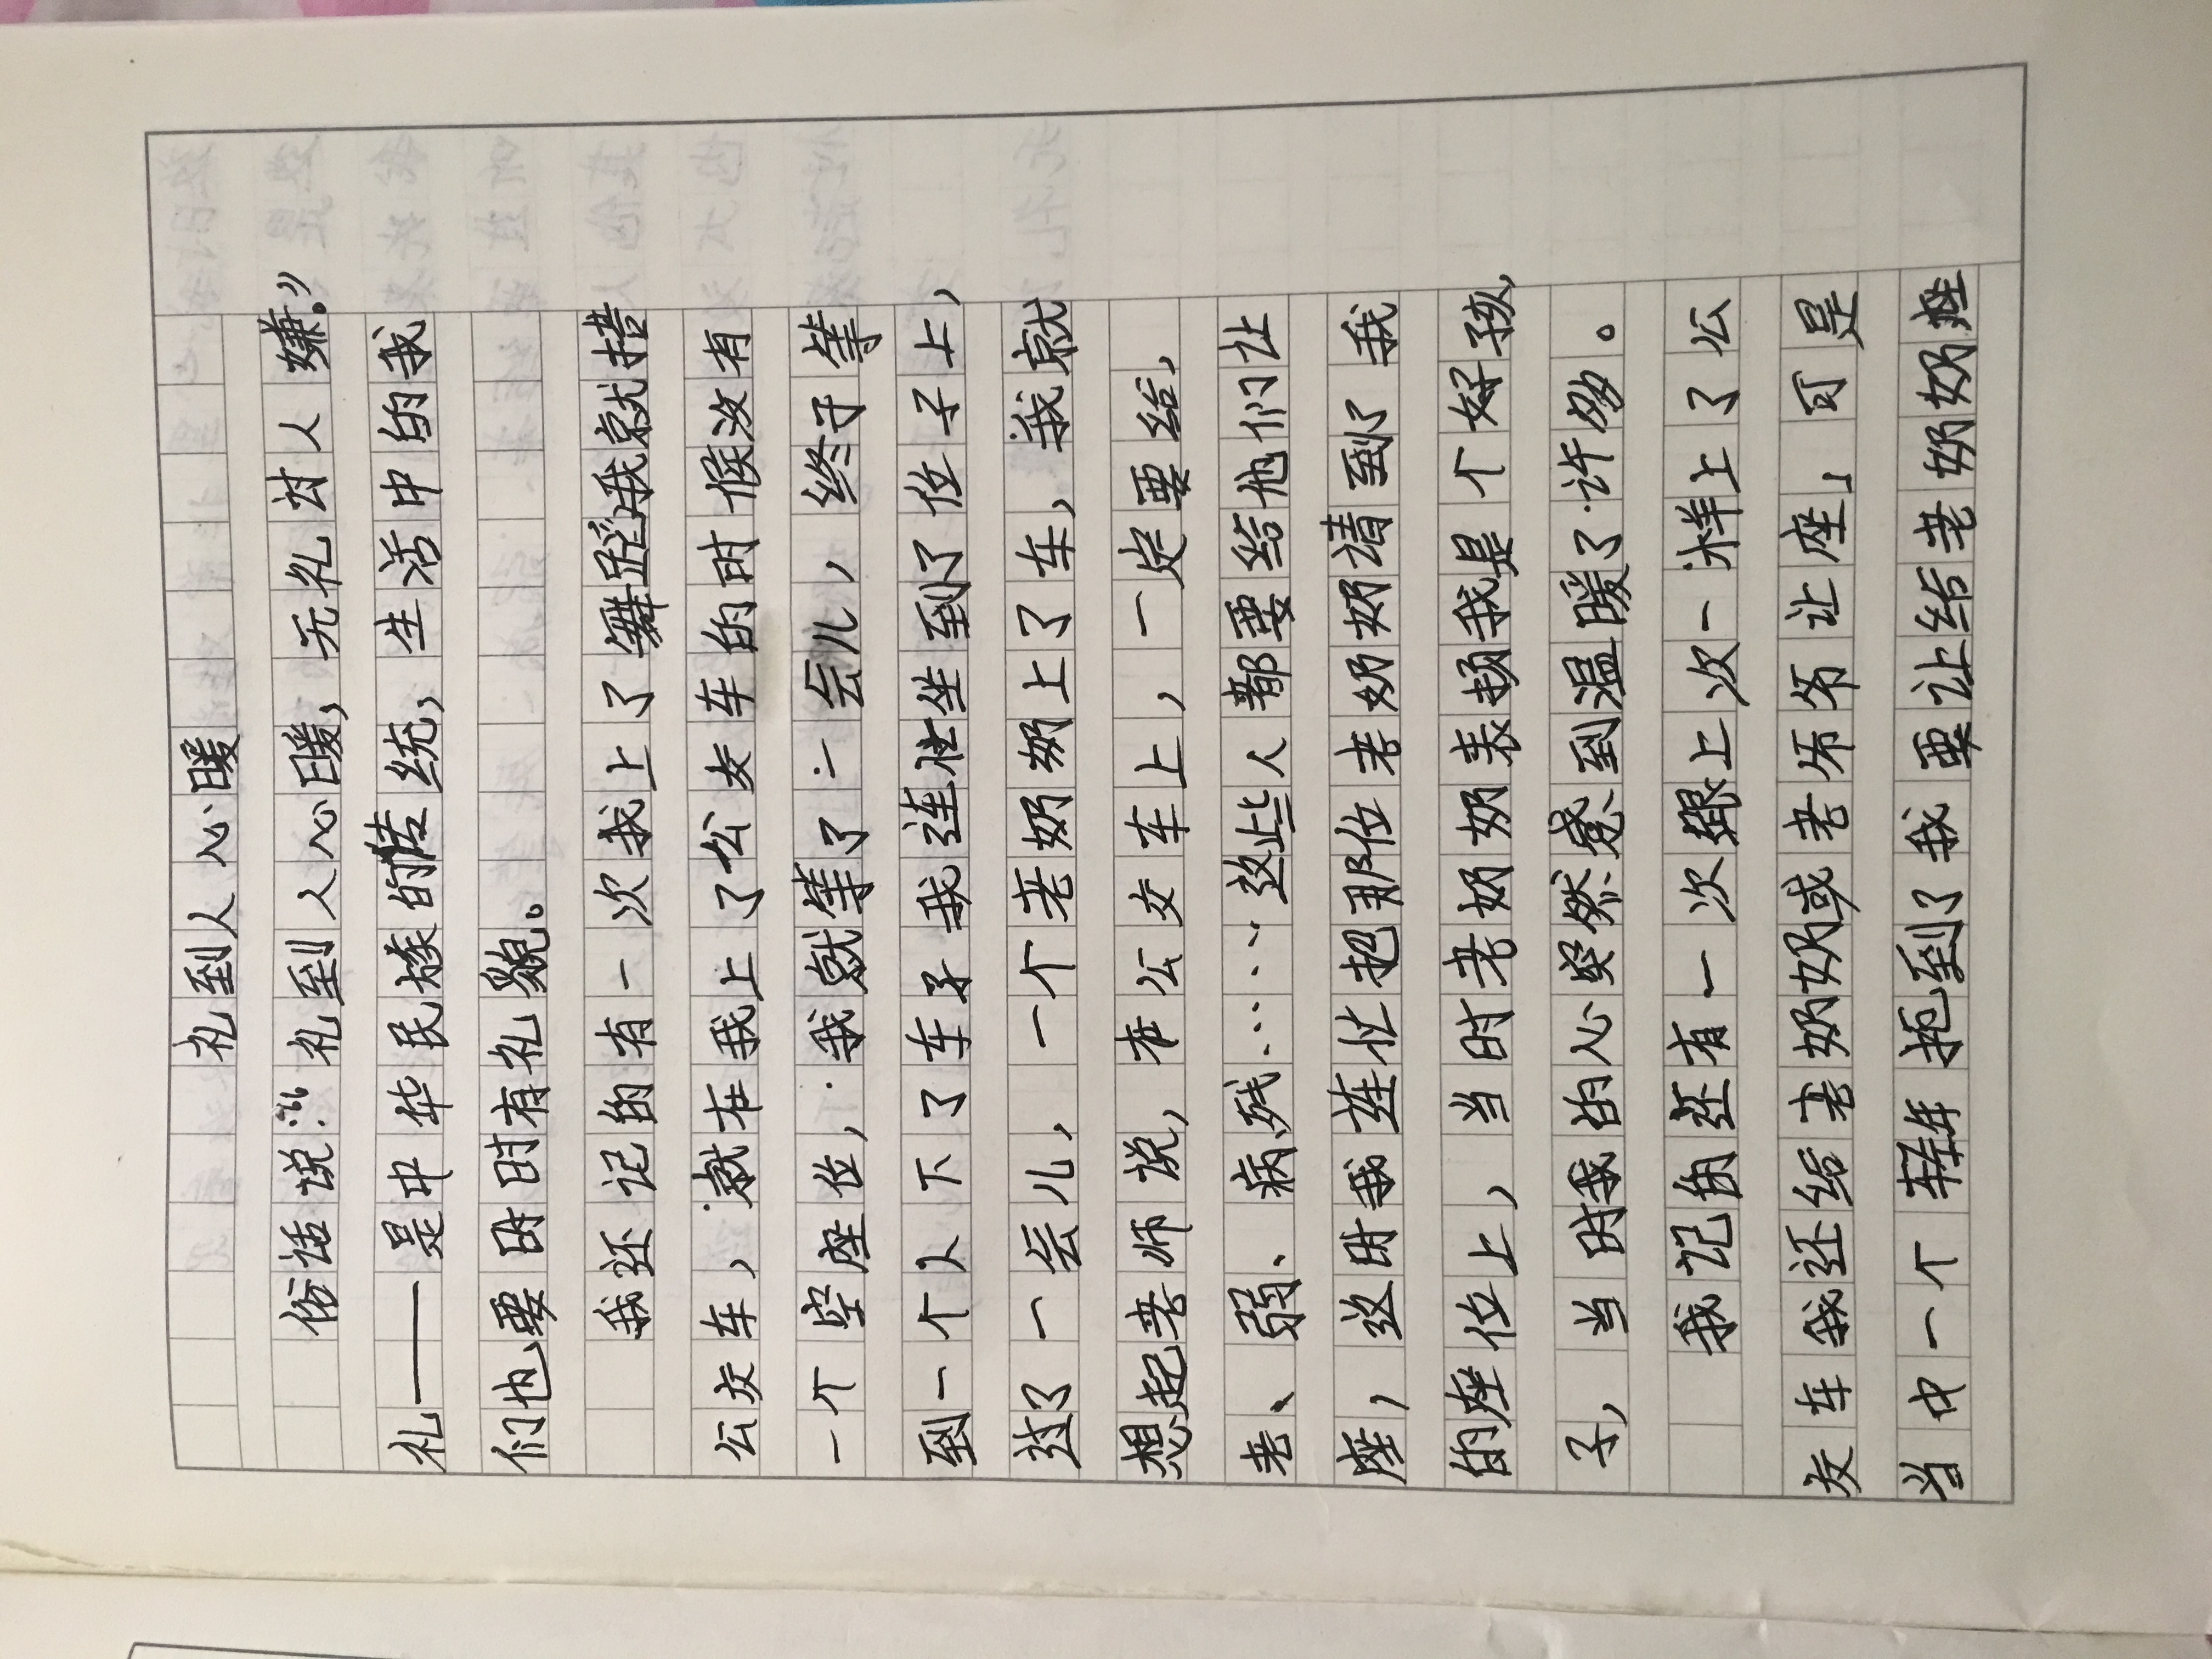 礼到人心暖
俗话说：“礼到人心暖，无礼对人嫌。”
礼——是中华民族的传统，生活中的我
们也要时时有礼貌。
我还记的有一次我上了舞蹈我就搭
公交车，就在我上了公交车的时候没有
一个空座位，我就等了一会儿，终于等
到一个人下了车子我连忙坐到了位子上，
过了一会儿，一个老奶奶上了车，我就
想起老师说，在公交车上，一定要给，
老、弱、病残……这些人都要给他们让
座，这时我连忙把那位老奶奶请到了我
的座位上，当时老奶奶表扬我是个好孩
子，当时我的心突然感到温暖了许多。
我记的还有一次跟上次一样上了公
交车我还给老奶奶或老爷爷让座」可是
当中一个年轻拖到了我要让给老奶奶座